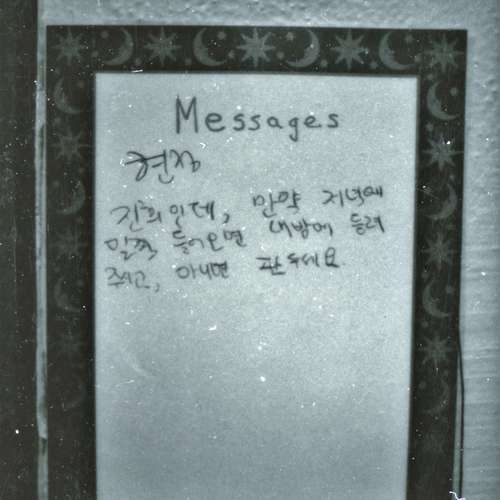 Messages
현정
진희인데, 만약 저녁에
일찍 들어오면 내방에 들려
주고, 아니면 관두세요.